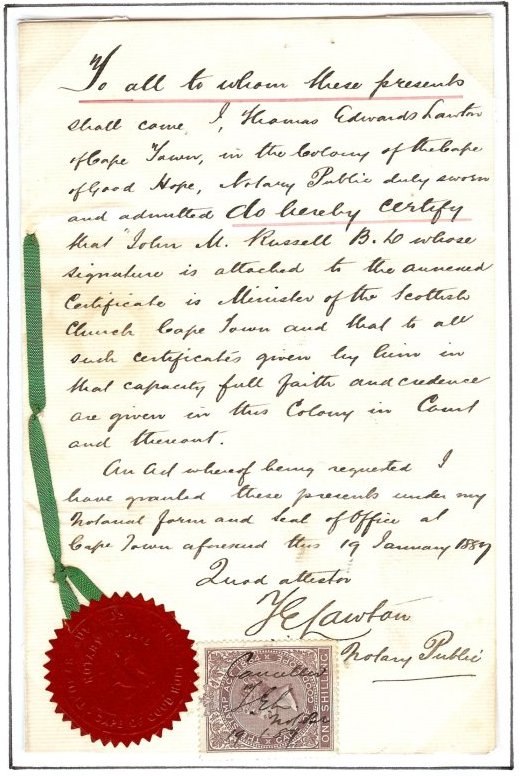 To all to whom these presents
shall come, I, Thomas Edwards Lawton
of Cape Town, in the Colony of the Cape
of Good Hope, Notary Public duly sworn
and admitted do hereby certify
that John M. Russell B. D whose
signature is attached to the annexed
Certificate is Minister of the Scottish
Church Cape Town and that to all
such certificates given by him in
that capacity full faith and credence
are given in this Colony in Court
and thereout.
An Act whereof being requested I
have granted these presents under my
Notarial form and Seal of Office at
Cape Town aforesaid this 19 January 1887
Quod attestor
T E Lawton
Notary Public
Cancelled
T.E.L
Notary
19.1.87
STAMP ACT
GOOD HOPE
ONE SHILLING
NOTARY PUBLIC
CAPE OF GOOD HOPE